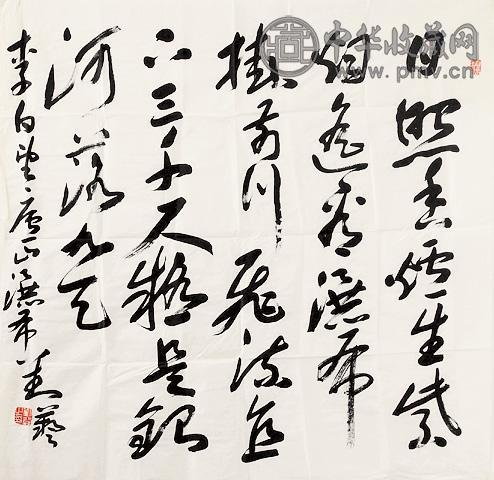 中华收藏网
www.pinv.cn
日照香爐生紫
烟遥看瀑布
掛前川飛流直
下三千尺疑是銀
河落九天
李白望廬山瀑布